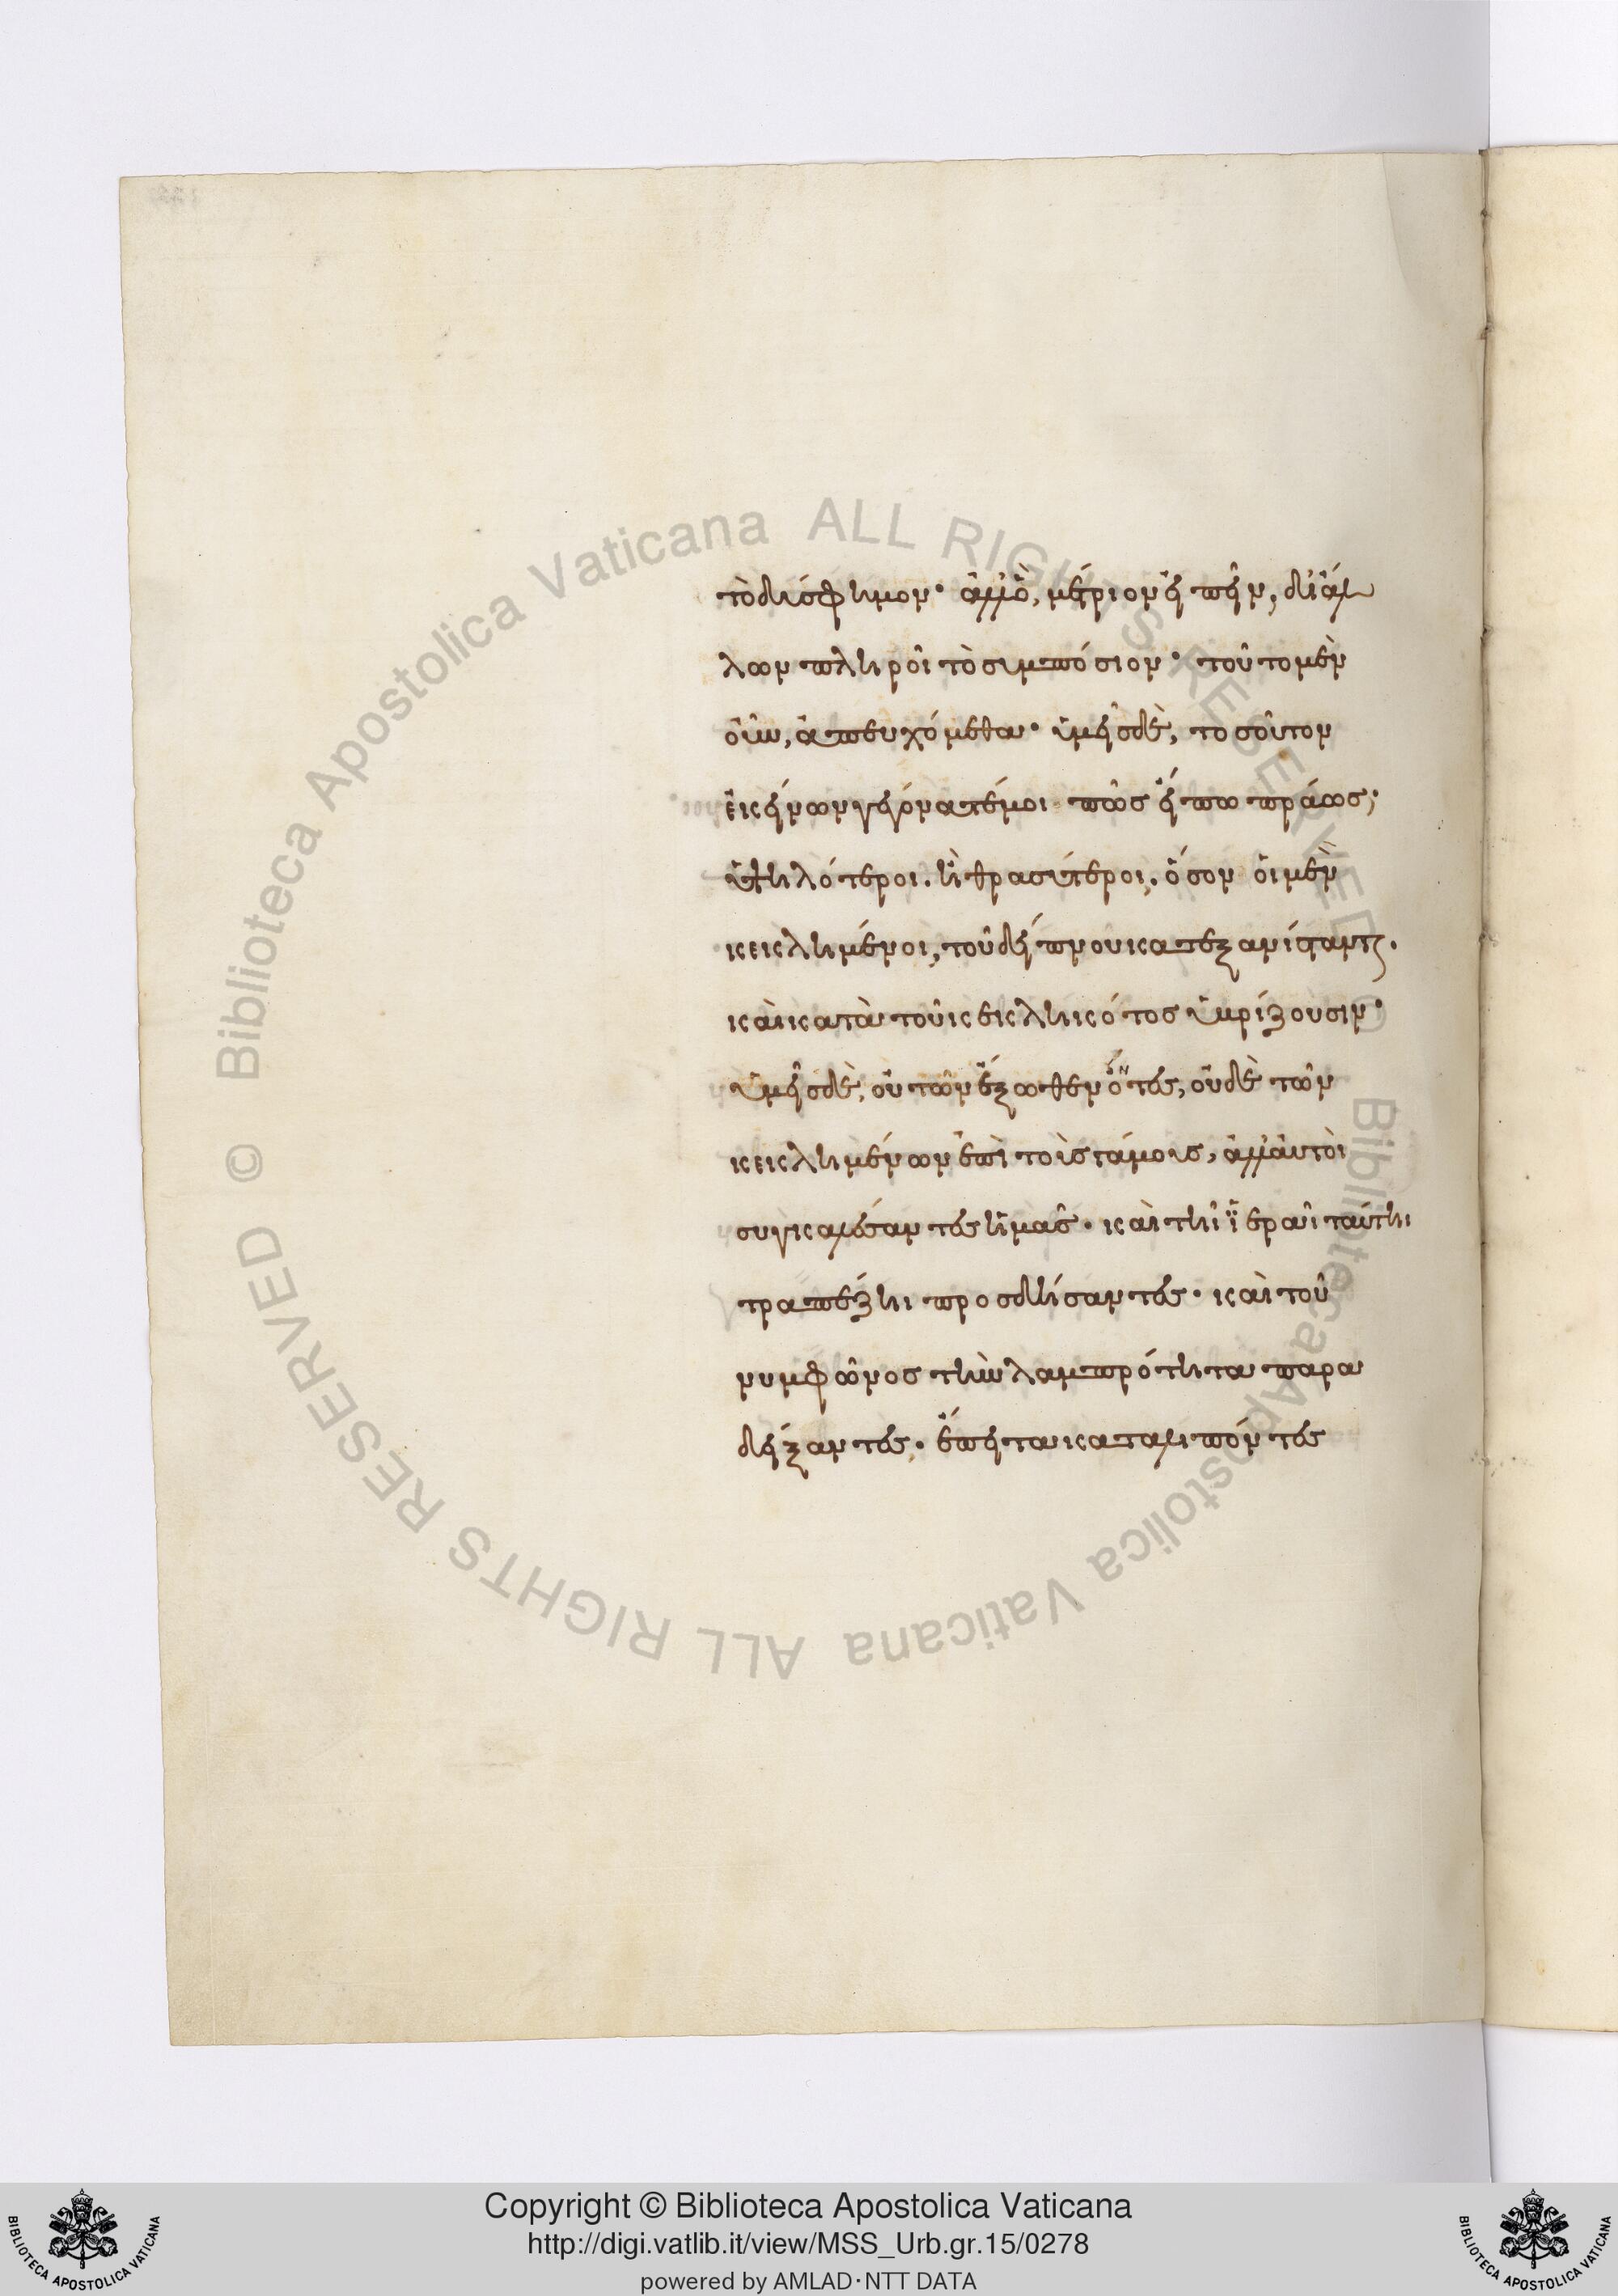 τὸ δύσφημον· ἀλλ' ὃ, μέτριον εἰπεῖν, δι' ἄλ
λων πληροῖ τὸ συμπόσιον· τοῦτο μὲν
οὖν, ἀπευχόμεθα· ὑμεῖς δὲ, τοσοῦτον
ἐκείνων γεγόνατέ μοι πῶς εἴπω πράως;
ὑψηλότεροι. ἢ θρασύτεροι. ὅσον οἱ μὲν
κεκλημένοι, τοῦ δείπνου κατεξανίστανται.
καὶ κατὰ τοῦ κεκληκότος ὑβρίζουσιν·
ὑμεῖς δὲ, οὐ τῶν ἔξωθεν ὄντες, οὐδὲ τῶν
κεκλημένων ἐπὶ τοὺς γάμους, ἀλλ' αὐτοὶ
συγκαλέσαντες ἡμᾶς. καὶ τῆι ἱερᾶι ταύτηι
τραπέζηι προσδήσαντες. καὶ τοῦ
νυμφῶνος τὴν λαμπρότητα παρα
δείξαντες. ἔπειτα καταλιπόντες
Biblioteca Apostolica Vaticana ALL RIGHTS RESERVED ©
Biblioteca Apostolica Vaticana ALL RIGHTS RESERVED ©
Copyright © Biblioteca Apostolica Vaticana
http://digi.vatlib.it/view/MSS_Urb.gr.15/0278
powered by AMLAD·NTT DATA
BIBLIOTECA APOSTOLICA VATICANA
BIBLIOTECA APOSTOLICA VATICANA